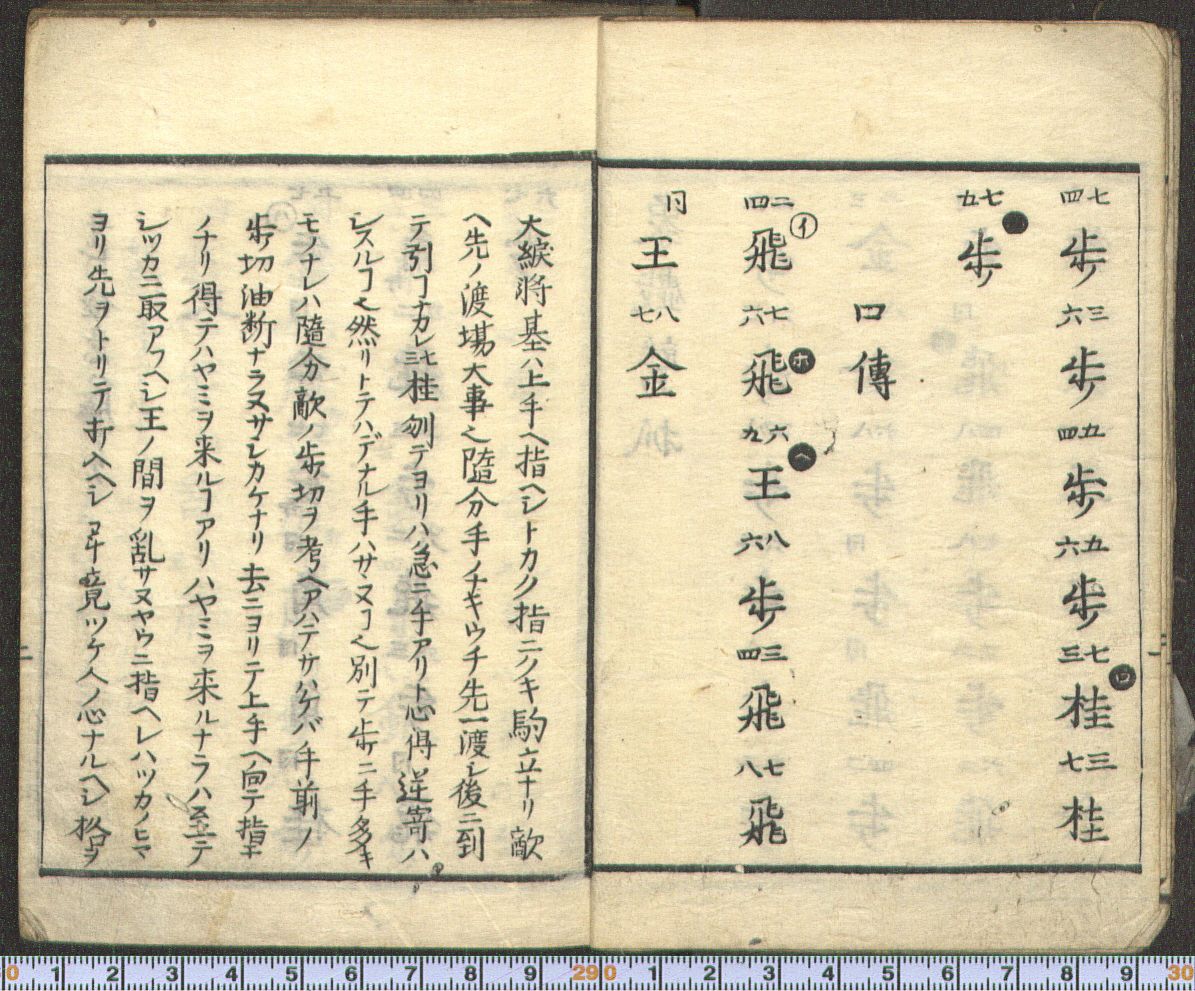 七四 歩 三六 歩 五四 歩 五六 歩 ロ 七三 桂 三七 桂
ニ 七九 歩
口傳
イ 二四 飛 ホ 七六 飛 ヘ 六九 王 八六 歩 三四 飛 七八 飛
同 王 八七 金
大綟將棊ハ上手ヘ指ヘシトカク指ニクキ駒立ナリ敵
ヘ先ノ渡場大事也隨分手ノナキウチ先一渡シ後ニ到
テ引ヿナカレ三七桂刎テヨリハ急ニ手アリト心得逆寄ハ
レスルヿ也然リトテハデナル手ハサヌヿ也別テ歩ニ手多キ
モノナレハ隨分敵ノ歩切ヲ考ヘアハテサハケバ手前ノ
歩切油断ナラヌサシカケナリ去ニヨリテ上手ヘ向テ指モ
ノナリ得テハヤミヲ来ルヿアリハヤミヲ来ルナラハ至テ
シツカニ取アフヘシ王ノ間ヲ乱サヌヤウニ指ヘシハツカノヒマ
ヨリ先ヲトリテ折ヘヘシ畢竟ツケ人ノ心ナルヘシ拾ヲ